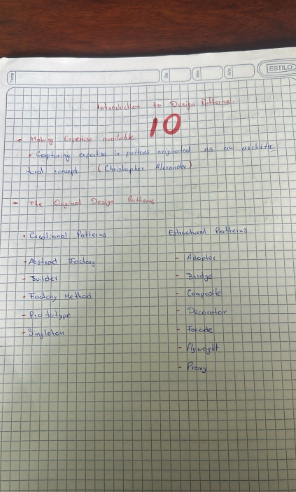 ESTILO
Introduction to Design Patterns.
10
- Making Expertise available
• Capturing expertise in pattern originated as an architec
tural concept (Christopher Alexander)
- The Original Design Patterns
• Creational Patterns
- Abstrad Factory
- Builder
- Factory Method
- Prototype
- Singleton
Estructural Patterns
- Adapter
- Bridge
- Composite
- Decorator
- Facade
- Flyweight
- Proxy